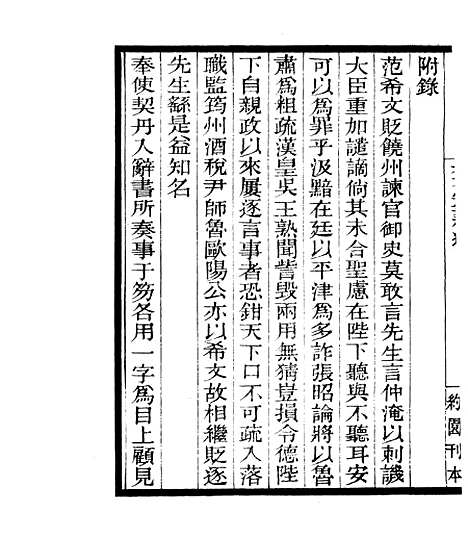 附錄
范希文貶饒州諫官御史莫敢言先生言仲淹以刺譏
大臣重加譴謫倘其未合聖慮在陛下聽與不聽耳安
可以為罪乎汲黯在廷以平津為多詐張昭論將以魯
肅為粗疏漢皇吳王熟聞訾毀兩用無猜豈損令德陛
下自親政以來屢逐言事者恐鉗天下口不可疏入落
職監筠州酒稅尹師魯歐陽公亦以希文故相繼貶逐
先生繇是益知名
奉使契丹人辭書所奏事于笏各用一字為目上顧見
約園刊本